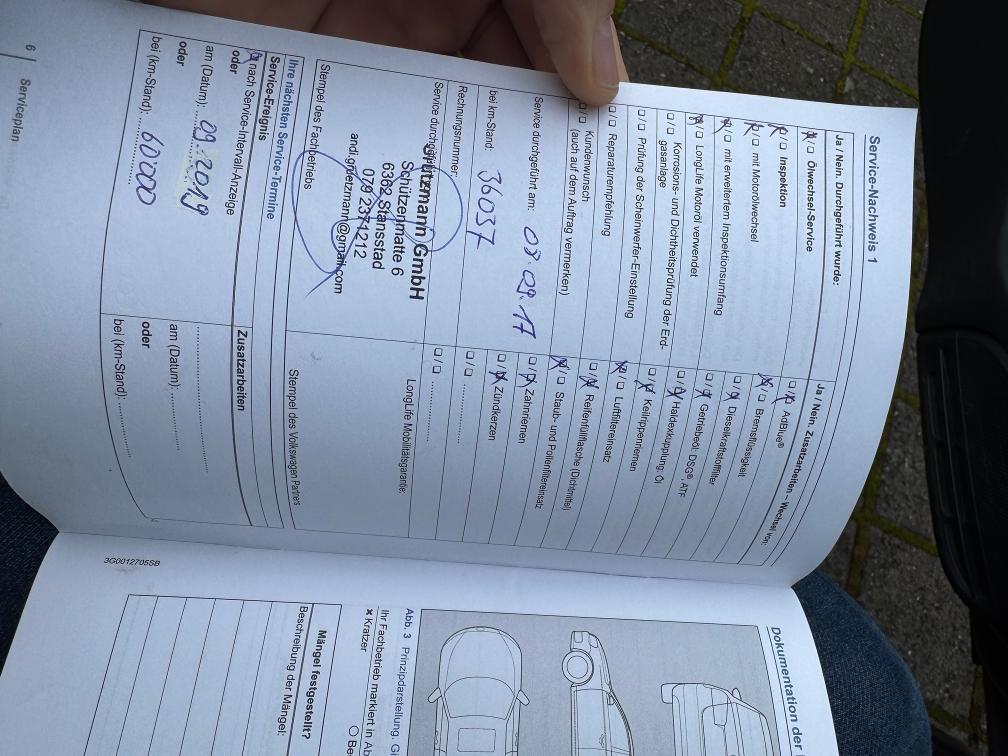 Service-Nachweis 1
Ja / Nein. Durchgeführt wurde:
☒/☐ Ölwechsel-Service
☒/☐ Inspektion
☒/☐ mit Motorölwechsel
☒/☐ mit erweitertem Inspektionsumfang
☒/☐ LongLife Motoröl verwendet
☐/☐ Korrosions- und Dichtheitsprüfung der Erd-
gasanlage
☐/☐ Prüfung der Scheinwerfer-Einstellung
☐/☐ Reparaturempfehlung
☐/☐ Kundenwunsch
(auch auf dem Auftrag vermerken)
Service durchgeführt am: 08 09.17
bei km-Stand: 36037
Rechnungsnummer:
Service durchgeführt
GmbH
Schützenmatte 6
6362 Stansstad
079 2371212
andi.goetzmann@gmail.com
Stempel des Fachbetriebs
Ja / Nein. Zusatzarbeiten – Wechsel von:
☐/☒ AdBlue®
☒/☐ Bremsflüssigkeit
☐/☒ Dieselkraftstofffilter
☐/☒ Getriebeöl: DSG®, ATF
☐/☒ Haldexkupplung: Öl
☐/☒ Keilrippenriemen
☒/☐ Luftfiltereinsatz
☐/☒ Reifenfüllflasche (Dichtmittel)
☒/☐ Staub- und Pollenfiltereinsatz
☐/☒ Zahnriemen
☐/☒ Zündkerzen
☐/☐ ............
☐/☐ ............
LongLife Mobilitätsgarantie:
Stempel des Volkswagen Partners
Ihre nächsten Service-Termine
Service-Ereignis
☒ nach Service-Intervall-Anzeige
oder
am (Datum): 09.2019
oder
bei (km-Stand): 60000
Zusatzarbeiten
am (Datum):
oder
bei (km-Stand):
6 | Serviceplan
Dokumentation der
Abb. 3 Prinzipdarstellung.
Ihr Fachbetrieb markiert in
✕ Kratzer
Mängel festgestellt?
Beschreibung der Mängel:
3G0012705SB